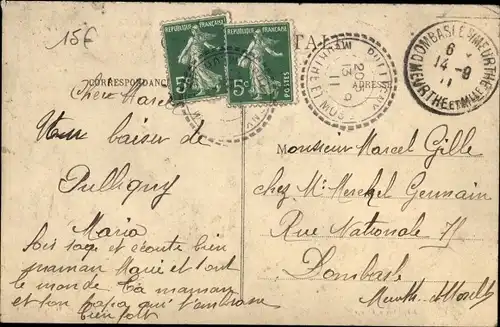 15€
RÉPUBLIQUE FRANÇAISE
5c
POSTES
RÉPUBLIQUE FRANÇAISE
5c
POSTES
CORRESPONDANC
ADRESSE
PULLIGNY
MEURTHE ET MOS
20
13
11
DOMBASLE S/ MEURTHE
6
14-9
11
MEURTHE ET MLLE
Cher Marcel
Un baiser de
Pulligny
Maria
Sois sage et écoute bien
maman et tout
le monde. Ta maman
et ton papa qui t'embrasse
bien fort
Monsieur Marcel Gille
chez Mr Merchel Germain
Rue Nationale 75
Dombasle
Meurthe-et-Moselle